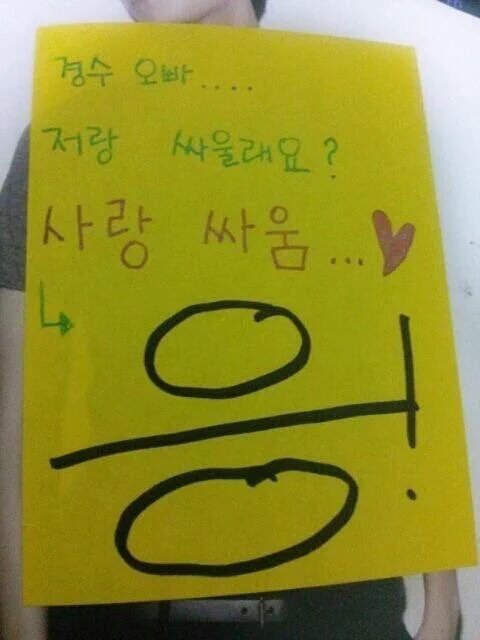 경수 오빠....
저랑 싸울래요?
사랑 싸움...♥
↳ 응!